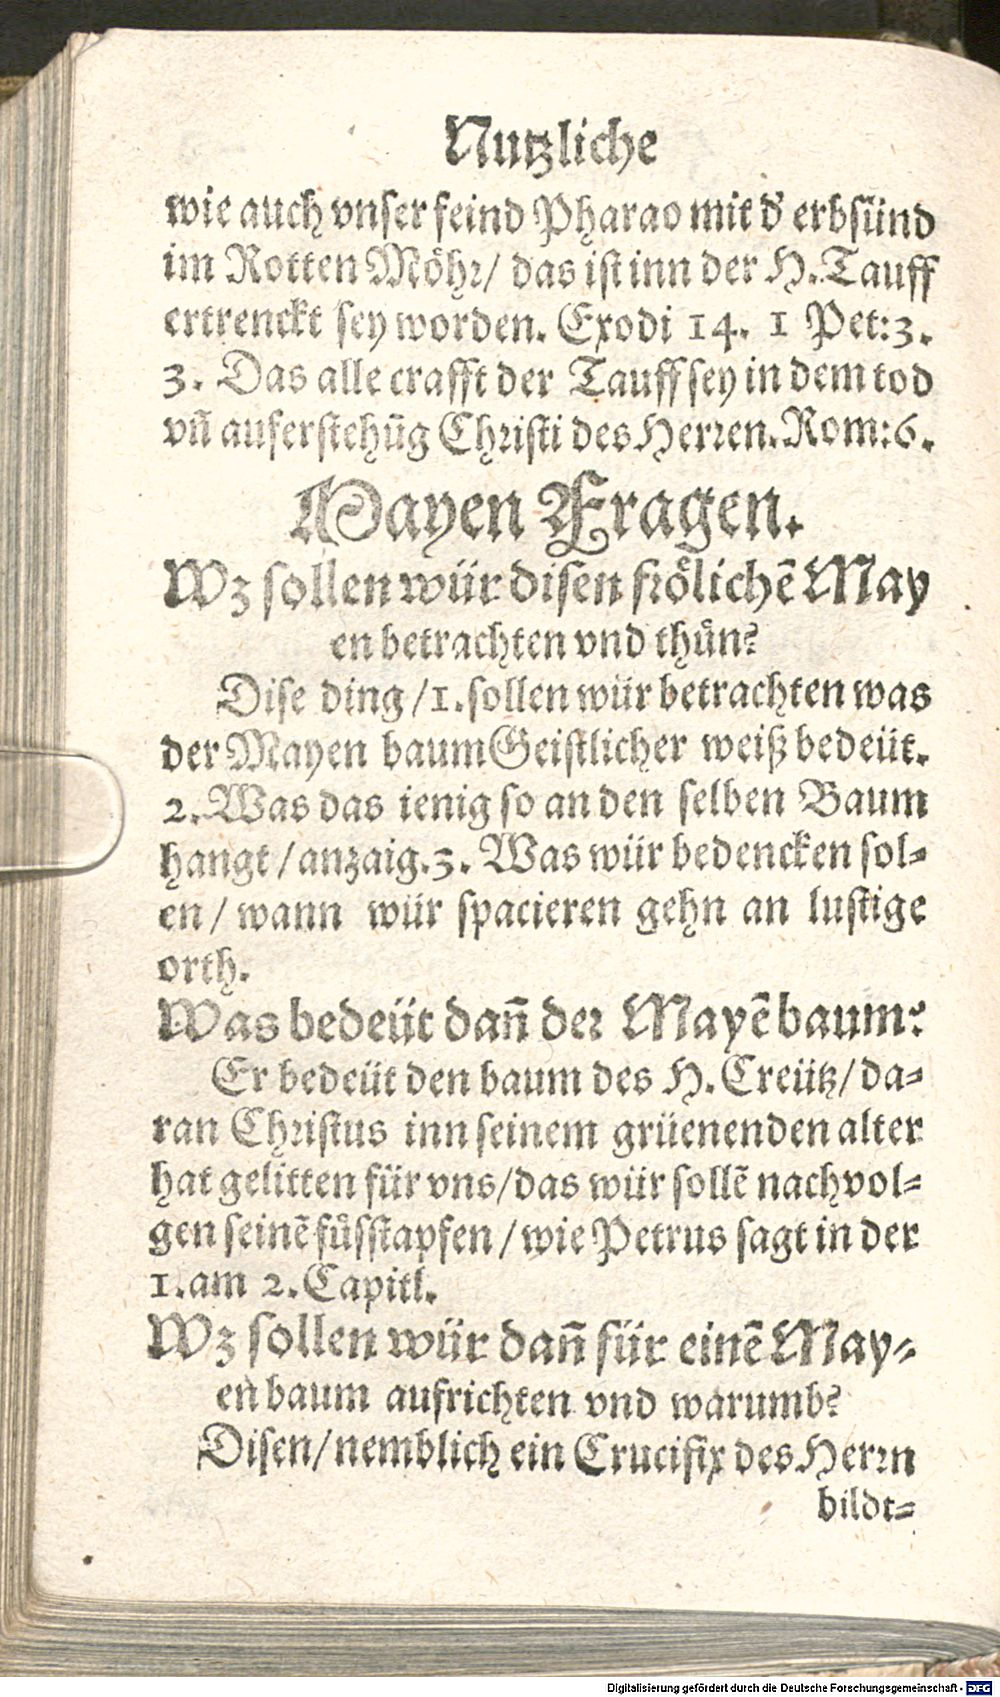 Nutzliche
wie auch vnser feind Pharao mit d' erbsünd
im Rotten Möhr/ das ist inn der H. Tauff
ertrenckt sey worden. Exodi 14. 1 Pet:3.
3. Das alle crafft der Tauff sey in dem tod
vñ auferstehũg Christi des Herren. Rom:6.
Mayen Fragen.
Wz sollen wür disen frölichẽ May
en betrachten vnd thůn?
Dise ding/1. sollen wür betrachten was
der Mayen baum Geistlicher weiß bedeüt.
2. Was das ienig so an den selben Baum
hangt/anzaig. 3. Was wür bedencken sol-
en/ wann wür spacieren gehn an lustige
orth.
Was bedeüt dañ der Mayẽbaum?
Er bedeüt den baum des H. Creütz/da-
ran Christus inn seinem grüenenden alter
hat gelitten für vns/das wür sollẽ nachvol-
gen seinẽ fůsstapfen/wie Petrus sagt in der
1. am 2. Capitl.
Wz sollen wür dañ für einẽ May-
en baum aufrichten vnd warumb?
Disen/nemblich ein Crucifix des Herrn
bildt-
Digitalisierung gefördert durch die Deutsche Forschungsgemeinschaft - DFG